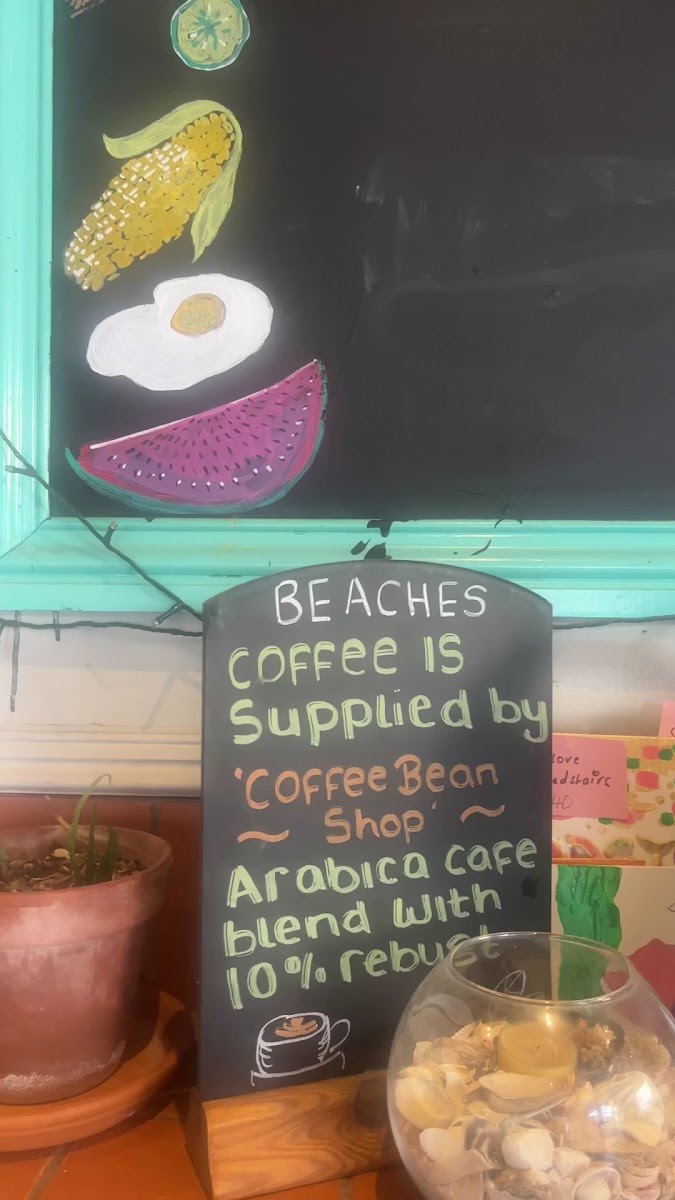 BEACHES
Coffee IS
Supplied by
'Coffee Bean
~ Shop' ~
Arabica cafe
blend with
10% rebust
love
adstairs
40